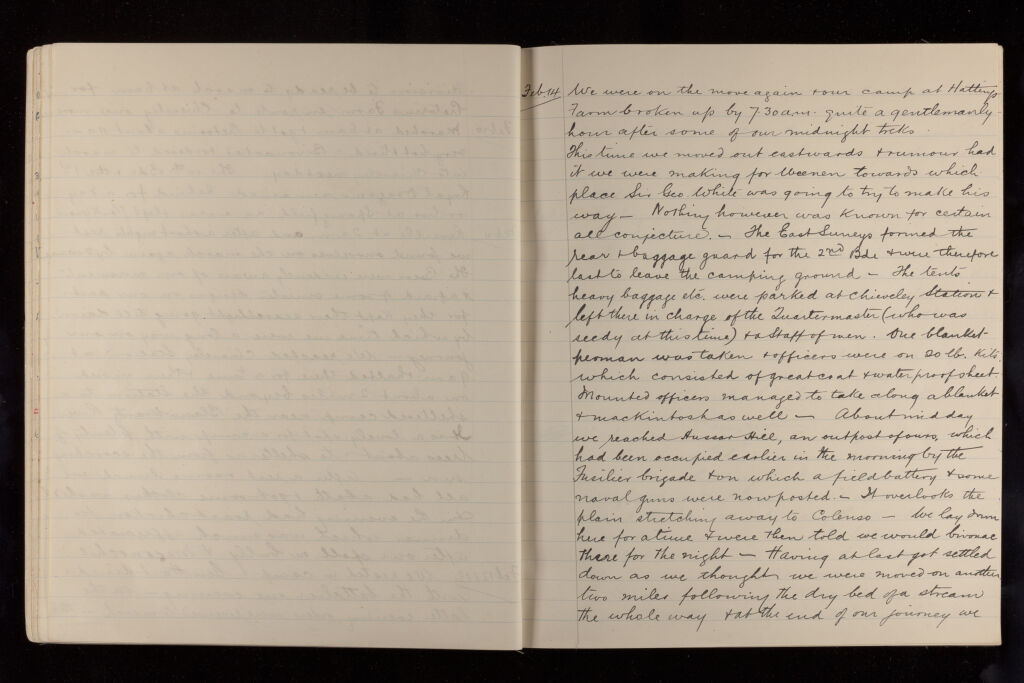 Feb 14 We were on the move again + our camp at Hattings
Farm broken up by 7.30 a.m. quite a gentlemanly
hour after some of our midnight treks.
This time we moved out eastwards + rumour had
it we were making for Weenen towards which
place Sir Geo White was going to try to make his
way — Nothing however was known for certain
all conjecture. — The East Surreys formed the
rear + baggage guard for the 2nd Bde + were therefore
last to leave the camping ground — The tents
heavy baggage etc. were parked at Chieveley Station +
left there in charge of the Quartermaster (who was
seedy at this time) + a Staff of men. One blanket
per man was taken + officers were on 20 lb. Kits.
which consisted of great coat + waterproof sheet.
Mounted officers managed to take along a blanket
+ mackintosh as well — About mid day
we reached Hussar Hill, an outpost of ours, which
had been occupied earlier in the morning by the
Fusilier brigade + on which a field battery + some
naval guns were now posted. — It overlooks the
plain stretching away to Colenso — We lay down
here for a time + were then told we would bivouac
there for the night — Having at last got settled
down as we thought we were moved on another
two miles following the dry bed of a stream
the whole way + at the end of our journey we